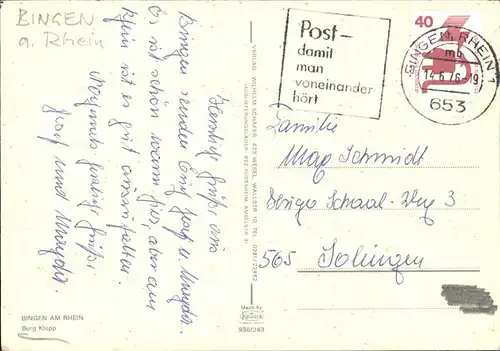 BINGEN
a. Rhein
Herzliche Grüße aus
Bingen senden Euch Josef u.
Es ist schön warm hier, aber am
Rhein ist es gut auszuhalten.
Nochmals herzliche Grüße,
Josef und
BINGEN AM RHEIN
Burg Klopp
VERLAG WILHELM SCHÄFER, 423 WESEL, WALLSTR. 10, TEL. 0281/22482
Made by
Krüger
936/243
Post-
damit
man
voneinander
hört
40
BINGEN, RHEIN 1
mb
14.6.76-19
653
Familie
Max Schmidt
Weg 3
565 Solingen